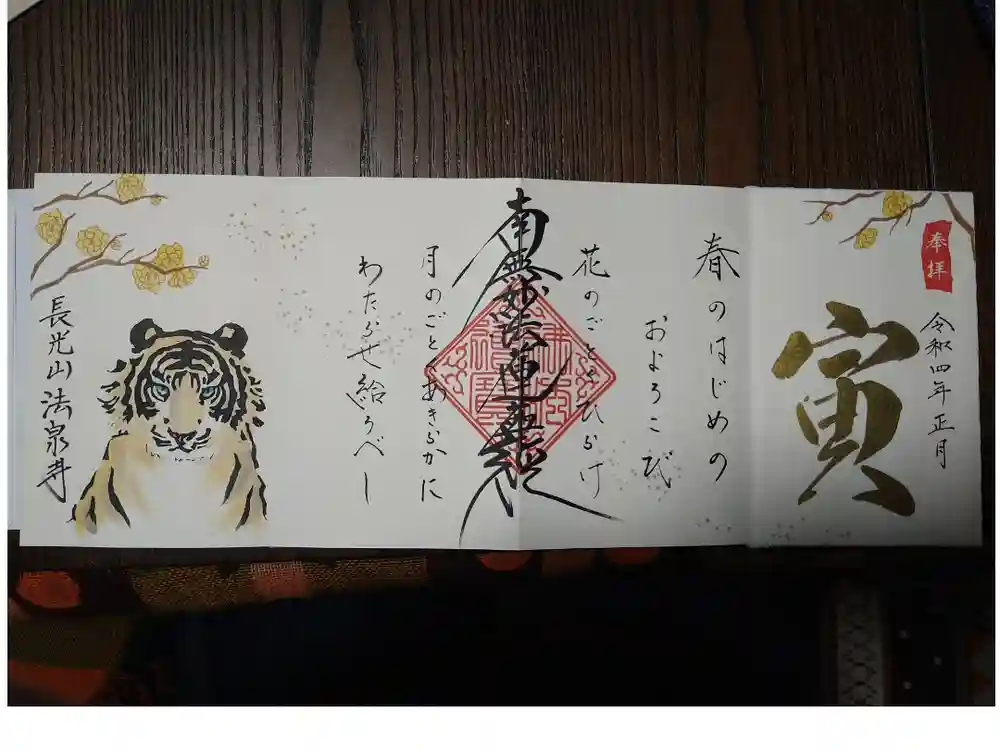 奉拝
令和四年正月
寅
春のはじめの
およろこび
花のごとくひらけ
南無妙法蓮華経
月のごとくあきらかに
わたらせ給うべし
長光山法泉寺